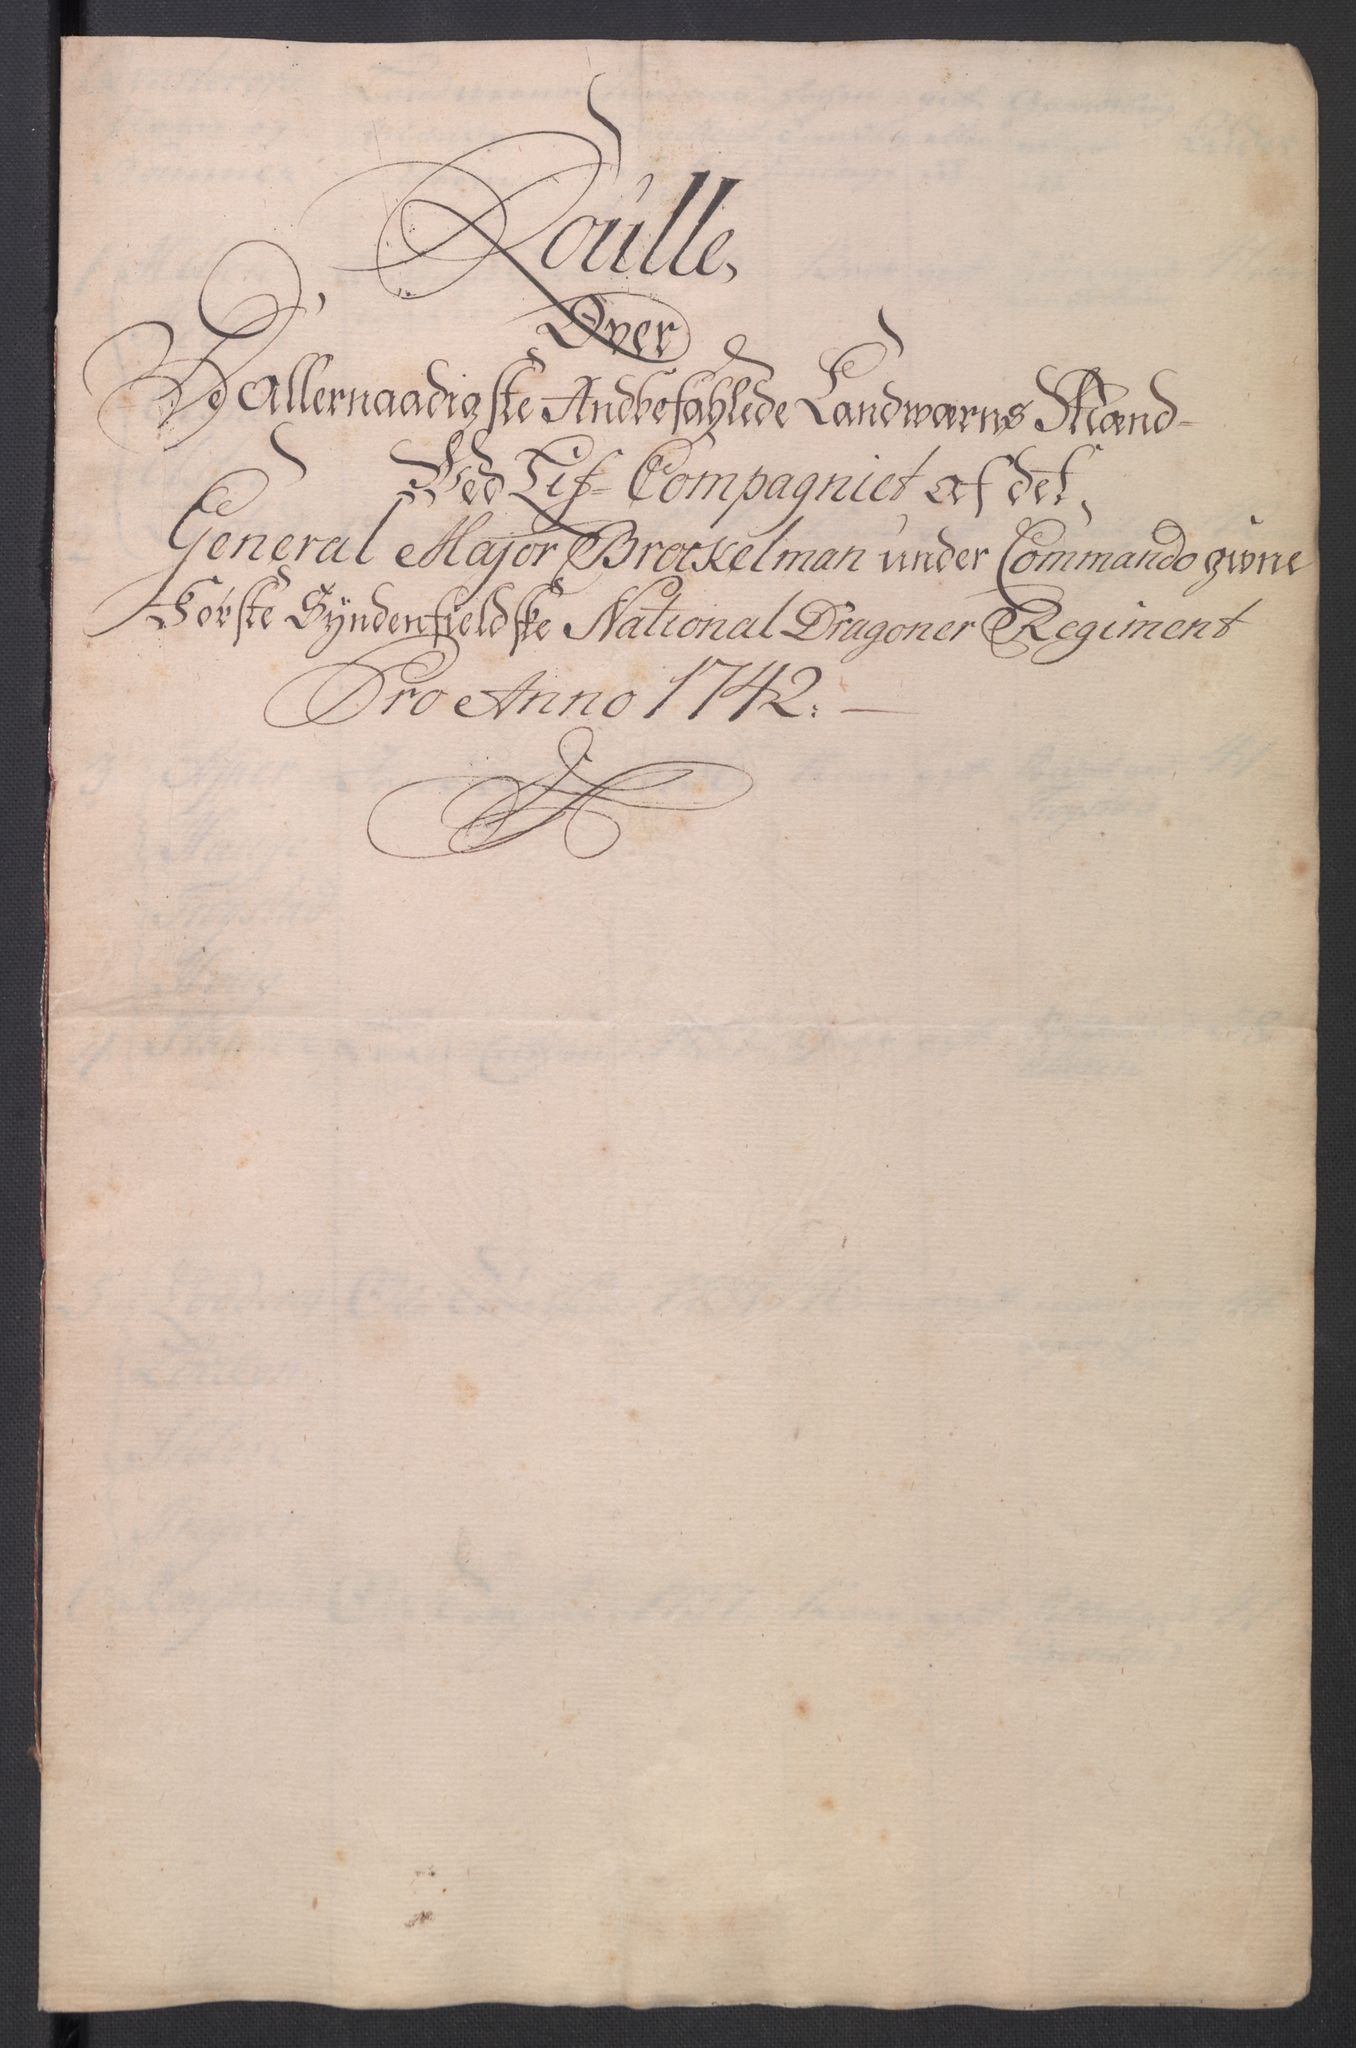 Roulle,
Over
De Allernaadigste Andbefahlede Landwærns Mænd-
Ved Lif-Compagniet af det,
General Major Brockelman under Commando givne
Første Syndenfieldske National Dragoner Regiment
Pro Anno 1742.